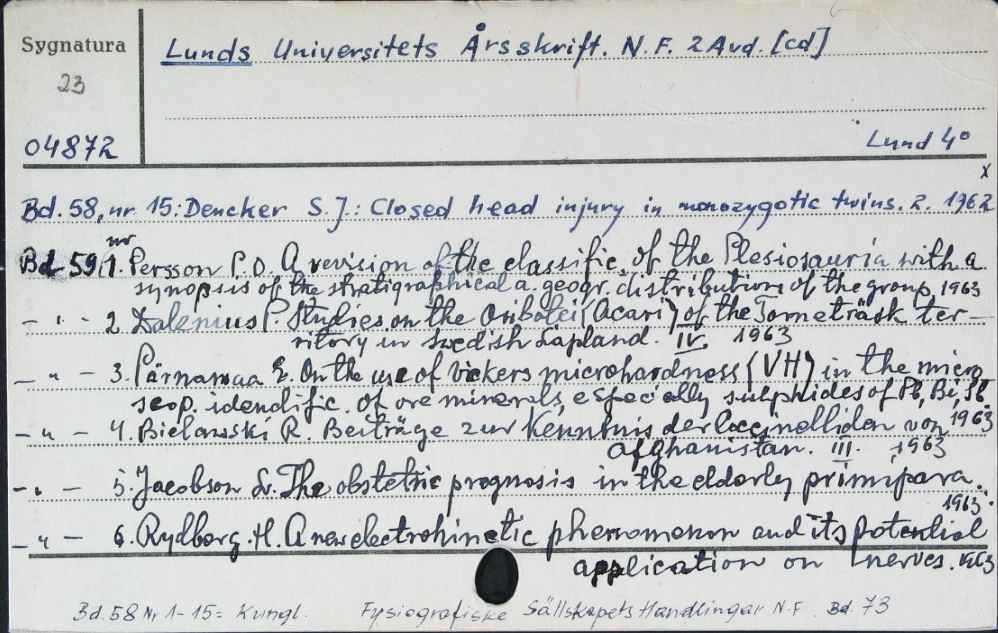 Sygnatura
23
04872
Lunds Universitets Årsskrift. N.F. 2 Avd. [cd]
Lund 4°
x
Bd. 58, nr 15: Dencker S. J.: Closed head injury in monozygotic twins. 2. 1962
Bd 59, nr 1. Persson P. O. A revision of the classific. of the Plesiosauria with a
synopsis of the stratigraphical a. geogr. distribution of the group 1963
- " - 2. Dalenius P. Studies on the Oribatei (Acari) of the Torneträsk ter-
ritory in Swedish Lapland. IV. 1963
- " - 3. Pärnamaa E. On the use of Vickers microhardness (VH) in the micro
scop. idendific. of ore minerals, especially sulphides of Pb, Bi, Sb.
1963
- " - 4. Bielawski R. Beiträge zur Kenntnis der Coccinelliden von
Afghanistan. III. 1963
- " - 5. Jacobson L. The obstetric prognosis in the elderly primipara.
1963.
- " - 6. Rydberg. H. A new electrokinetic phenomenon and its potential
application on nerves. 1963
Bd. 58 Nr 1-15 = Kungl. Fysiografiske Sällskapets Handlingar N.F. Bd. 73